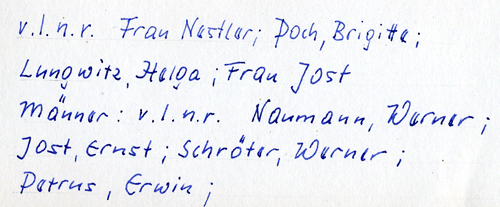 v.l.n.r. Frau Nestler; Poch, Brigitte;
Lungwitz, Helga; Frau Jost
Männer: v.l.n.r. Naumann, Werner;
Jost, Ernst; Schröter, Werner;
Petrus, Erwin;